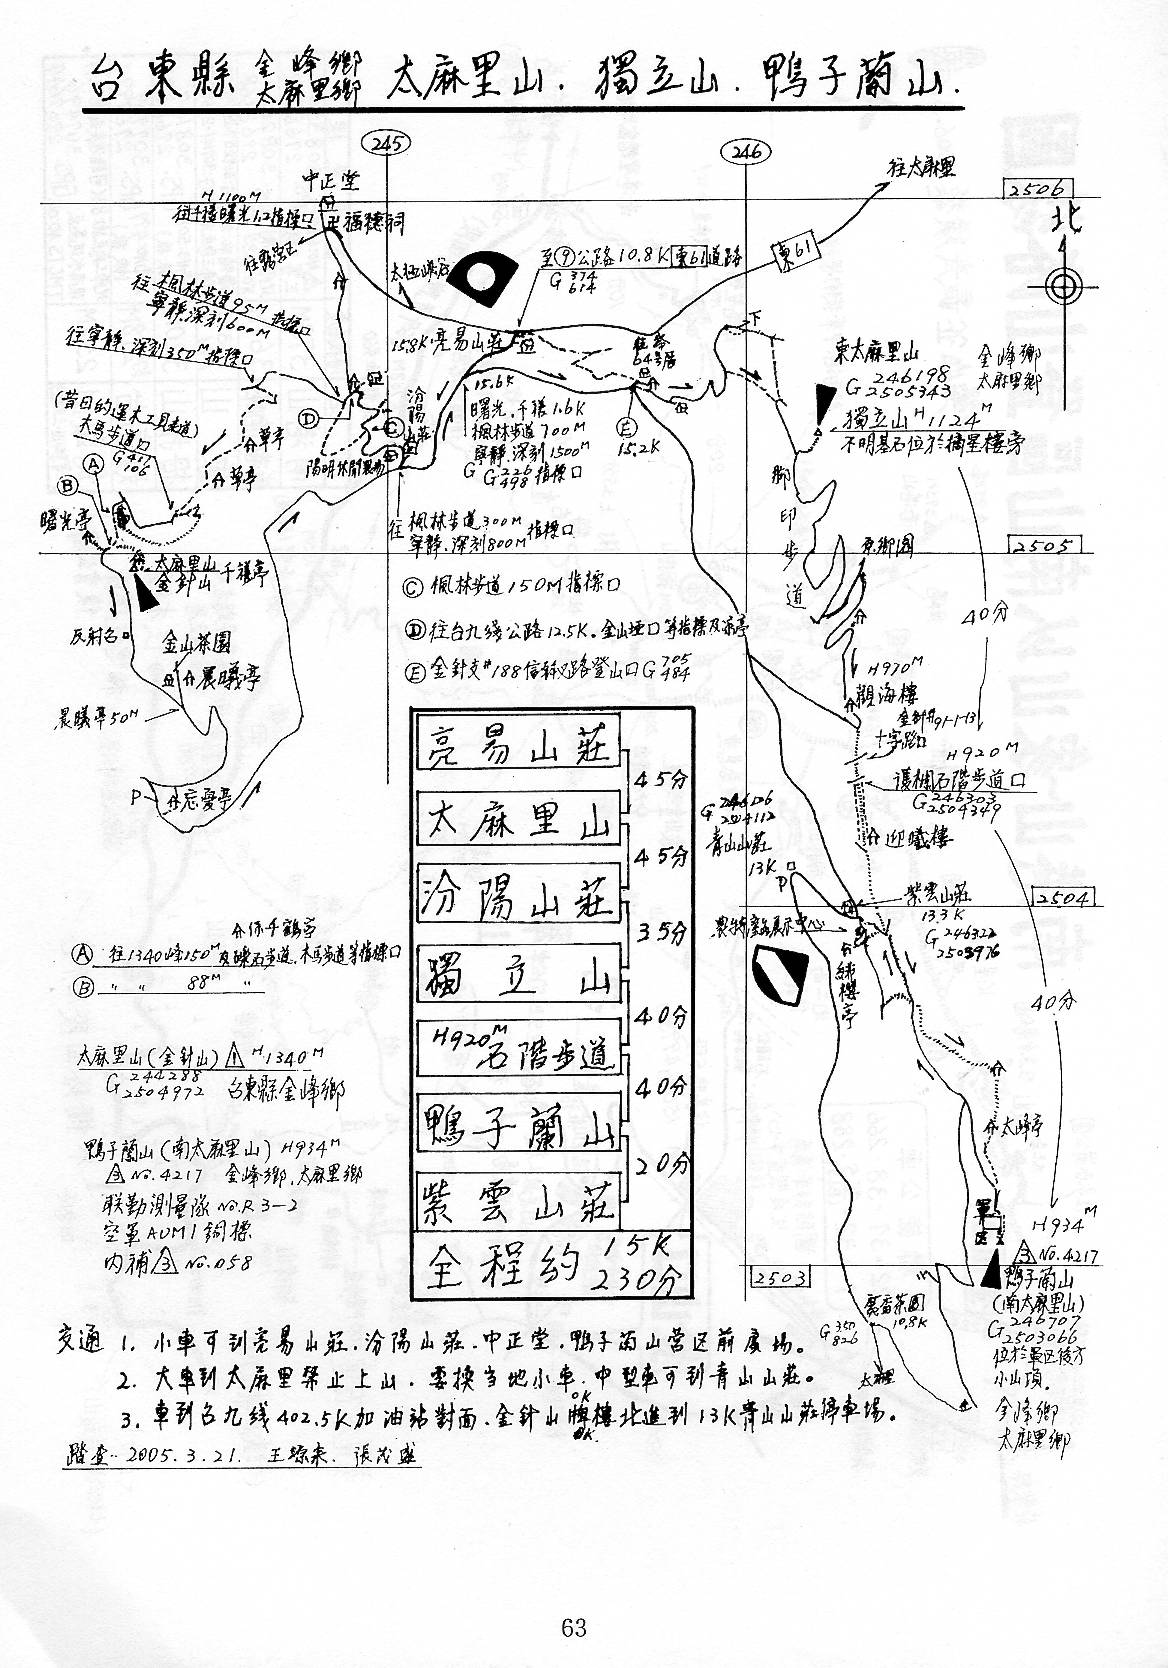 台東縣 金峰鄉 太麻里鄉 太麻里山．獨立山．鴨子蘭山．
245
246
往太麻里
2506
北
中正堂
H1100M
福德祠
東61
至⑨公路10.8K東61道路
G 374
614
往楓林步道95M
寧靜.深刻600M
往寧靜.深刻350M指標口
15.8K亮易山莊
東太麻里山
G 246198
2505343
獨立山H1124M
不明基石位於摘星樓旁
金峰鄉
太麻里鄉
15.6K
曙光.千禧1.6K
楓林步道700M
寧靜.深刻1500M
G 326
498 指標口
汾陽山莊
Ⓔ
15.2K
Ⓓ
Ⓒ
木馬步道口
G 417
106
草亭
草亭
Ⓐ
Ⓑ
曙光亭
腳印步道
往楓林步道300M
寧靜.深刻800M指標口
2505
太麻里山
金針山
千禧亭
Ⓒ楓林步道150M指標口
Ⓓ往台九線公路12.5K.金山埡口等指標及涼亭
Ⓔ金針支#188信義叉路登山口G 705
484
40分
反射鏡
金山茶園
晨曦亭
晨曦亭50M
P
忘憂亭
H970M
觀海樓
十字路口
H920M
護欄石階步道口
G 246303
2504349
迎曦樓
亮易山莊
45分
太麻里山
45分
汾陽山莊
35分
獨立山
40分
H920M
石階步道
40分
鴨子蘭山
20分
紫雲山莊
全程約 15K
230分
G 246106
2504112
青山山莊
13K
P
紫雲山莊
13.3K
G 246322
2503976
2504
40分
太峰亭
Ⓐ往1340峰150M及碎石步道.木馬步道等指標口
Ⓑ 〃 〃 88M 〃
太麻里山(金針山)△1 H1340M
G 244288
2504972
台東縣金峰鄉
鴨子蘭山(南太麻里山)H934M
△3 No.4217 金峰鄉.太麻里鄉
聯勤測量隊No.R3-2
空軍AUM1銅標
內補△3 No.058
2503
H934M
△3 No.4217
鴨子蘭山
(南太麻里山)
G 246707
2503066
位於軍區後方
小山頂.
金峰鄉
太麻里鄉
10.8K
G 350
826
交通 1. 小車可到亮易山莊.汾陽山莊.中正堂.鴨子蘭山營区前廣場。
2. 大車到太麻里禁止上山.要換当地小車.中型車可到青山山莊。
3. 車到台九线402.5K加油站對面.金針山牌樓北進到13K青山山莊停車場。
0K
踏查..2005.3.21. 張茂盛
63